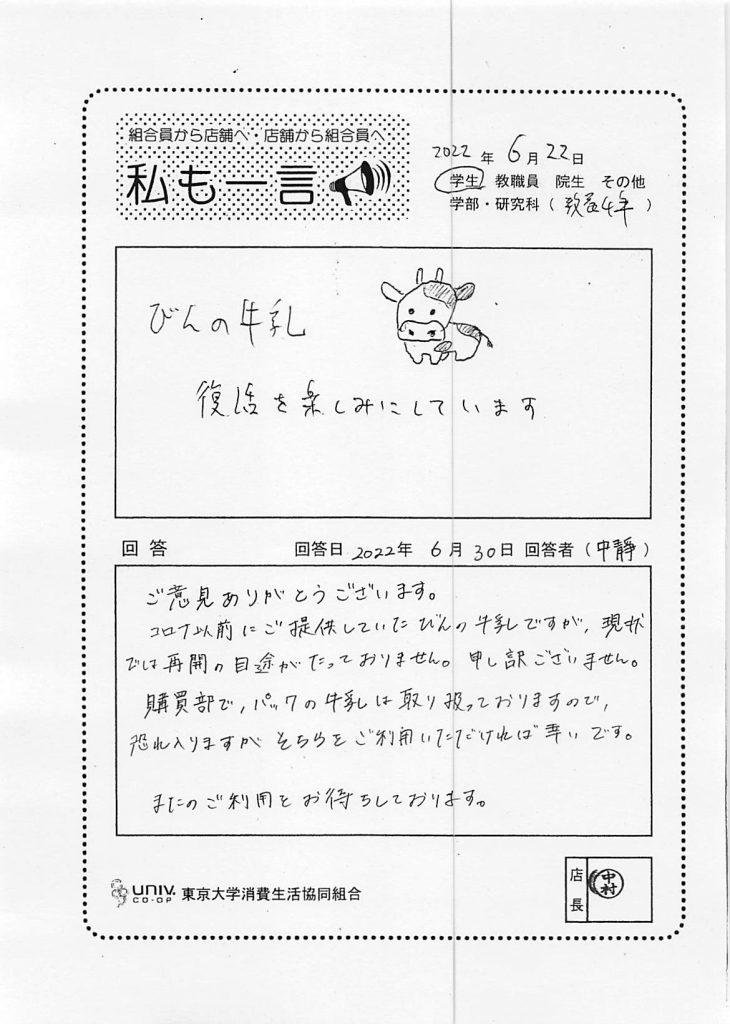 組合員から店舗へ・店舗から組合員へ
私も一言
2022年6月22日
学生 教職員 院生 その他
学部・研究科(教養4年)
びんの牛乳
復活を楽しみにしています
回答 回答日2022年6月30日 回答者(中静)
ご意見ありがとうございます。
コロナ以前にご提供していたびんの牛乳ですが、現状
では再開の目途がたっておりません。申し訳ございません。
購買部で、パックの牛乳は取り扱っておりますので、
恐れ入りますがそちらをご利用いただければ幸いです。
またのご利用をお待ちしております。
UNIV.
CO-OP
東京大学消費生活協同組合
店長
中村